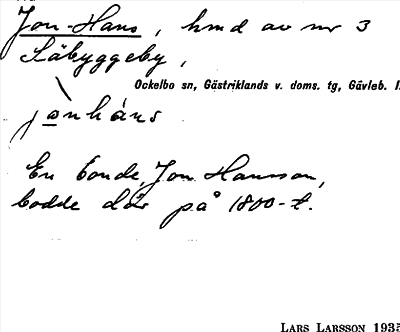 Jon-Hans, hmd av nr 3
Säbyggeby,
Ockelbo sn, Gästriklands v. doms. tg, Gävleb. l.
jonháns
En bonde, Jon Hansson,
bodde där på 1800-t.
LARS LARSSON 1935